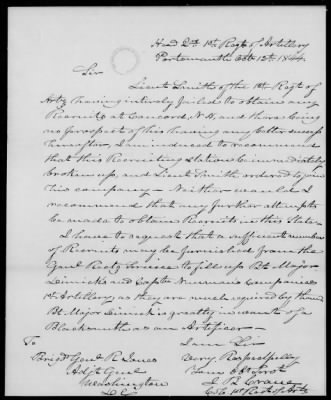 Head Qrs 1st Regt of Artillery
Portsmouth Oct 12th 1844.
Sir
Lieut Smith of the 1st Regt of
Arty having intirely failed to obtain any
Recruits at Concord, N.H, and there being
no prospect of his having any better success
hereafter, I am induced to recommend
that this Recruiting Station be immediately
broken up, and Lieut Smith ordered to join
his company – Neither would I
recommend that any further attempts
be made to obtain Recruits in this State.
I have to request that a sufficient number
of Recruits may be furnished from the
Genl Rectg Service to fill up Bt Major
Dimick's and Capts Nauman's Companies
1st Artillery, as they are much required by them
Bt Major Dimick is greatly in want of a
Blacksmith as an Artificer –
To
I am Sir
Brigd Genl R. Jones
Very Respectfully
Adjt Genl
Your Obt Servt
Washington
I B Crane
D.C.
Col 1st Regt of Arty